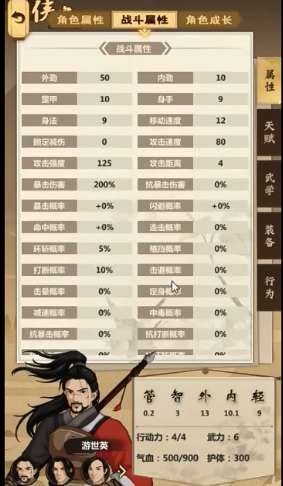 侠
角色属性 战斗属性 角色成长
战斗属性
外劲 50 内劲 10
罡甲 10 身手 9
身法 9 移动速度 12
固定减伤 0 攻击速度 80
攻击强度 125 攻击距离 4
暴击伤害 200% 抗暴击伤害 0%
暴击概率 +0% 闪避概率 +0%
命中概率 +0% 连击概率 0%
环斩概率 5% 格挡概率 0%
打断概率 10% 击退概率 0%
击晕概率 0% 定身概率 0%
减速概率 0% 中毒概率 0%
抗暴击概率 0% 抗打断概率 0%
属性
天赋
武学
装备
行为
管 智 外 内 轻
0.2 3 13 10.1 9
行动力：4/4 武力：6
气血：500/900 护体：300
游世英